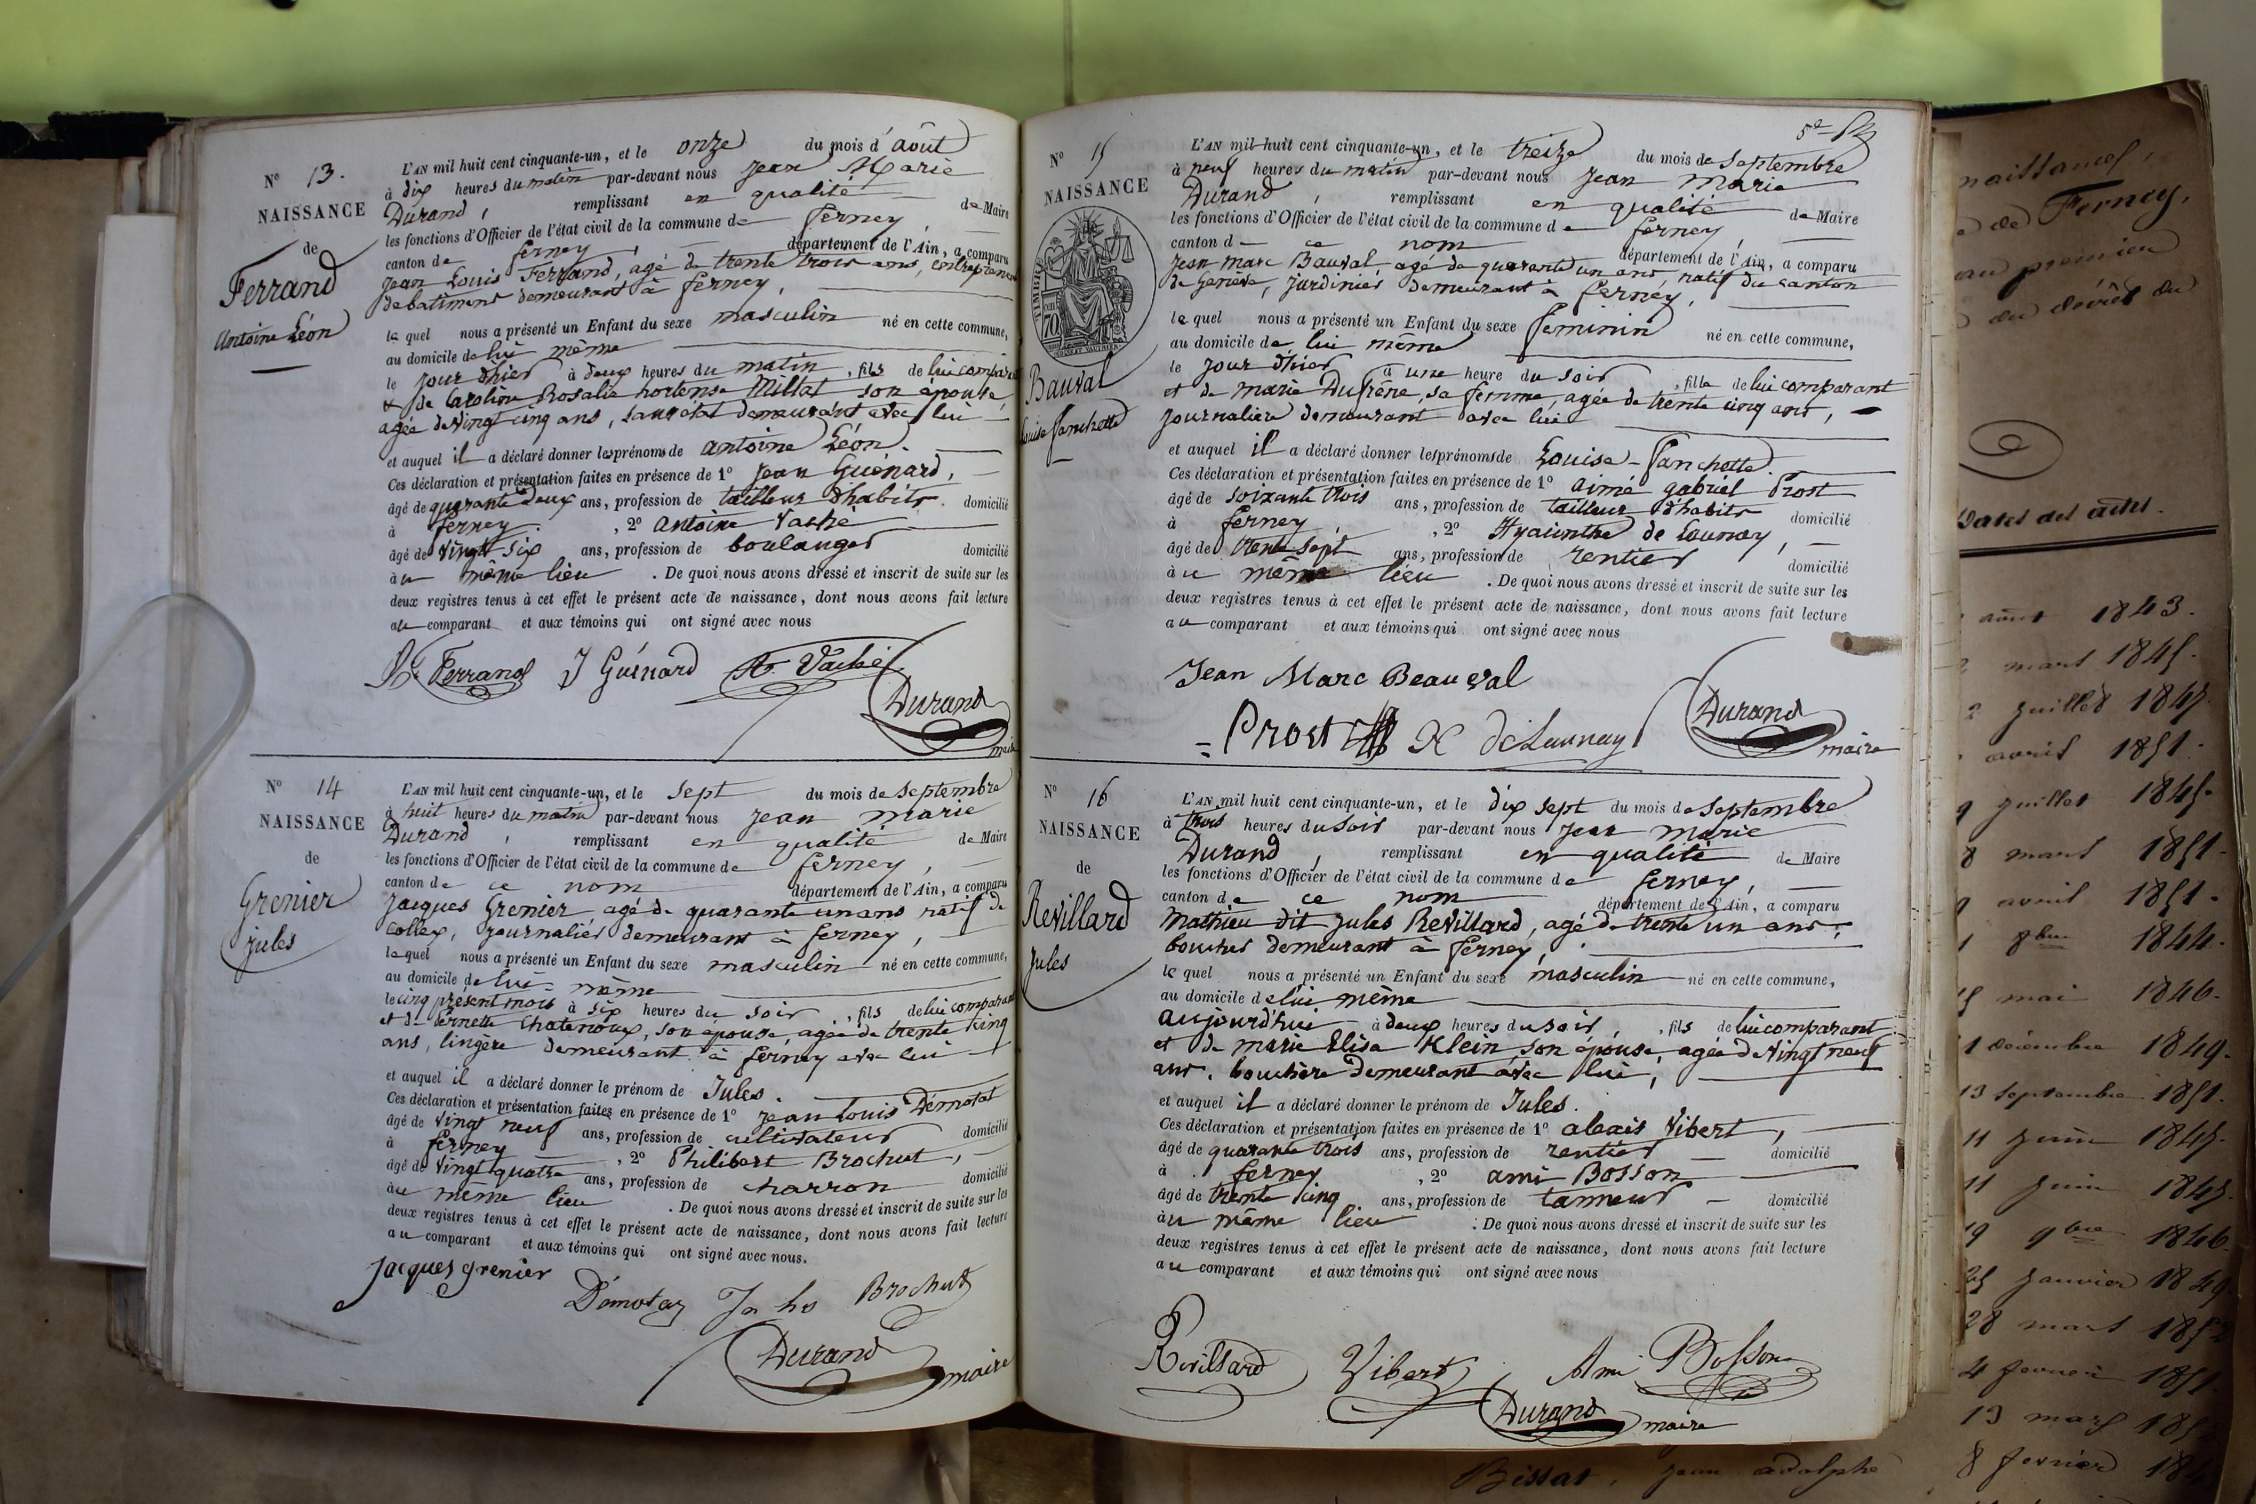 N° 13.
NAISSANCE
de
Ferrand
Antoine Léon
L'AN mil huit cent cinquante-un, et le onze du mois d'août
à dix heures du matin par-devant nous Jean Marie
Durand, remplissant en qualité de Maire
les fonctions d'Officier de l'état civil de la commune de ferney,
canton de ferney, département de l'Ain, a comparu
Jean Louis Ferrand, agé de trente trois ans, entrepreneur
de batiment demeurant à ferney,
lequel nous a présenté un Enfant du sexe masculin né en cette commune,
au domicile de lui même
le jour d'hier à deux heures du matin, fils de lui comparant
& de Caroline Rosalie hortense Millat son épouse,
agée de vingt cinq ans, sans état demeurant avec lui
et auquel il a déclaré donner les prénoms de antoine Léon.
Ces déclaration et présentation faites en présence de 1° Jean Guénard,
âgé de quarante deux ans, profession de tailleur d'habits. domicilié
à ferney. , 2° antoine Vaché
âgé de vingt six ans, profession de boulanger domicilié
au même lieu . De quoi nous avons dressé et inscrit de suite sur les
deux registres tenus à cet effet le présent acte de naissance, dont nous avons fait lecture
au comparant et aux témoins qui ont signé avec nous
Ferrand J Guénard At. Vaché
Durand
maire
N° 14
NAISSANCE
de
Grenier
jules
L'AN mil huit cent cinquante-un, et le sept du mois de septembre
à huit heures du matin par-devant nous jean marie
Durand, remplissant en qualité de Maire
les fonctions d'Officier de l'état civil de la commune de ferney,
canton de ce nom département de l'Ain, a comparu
jacques Grenier, agé de quarante un ans natif de
Collex, journalier demeurant à ferney,
lequel nous a présenté un Enfant du sexe masculin né en cette commune,
au domicile de lui = même
le cinq présent mois à six heures du soir, fils de lui comparant
et de Pernette Chatenoux, son épouse, agée de trente cinq
ans, lingère demeurant à ferney avec lui
et auquel il a déclaré donner le prénom de Jules.
Ces déclaration et présentation faites en présence de 1° jean Louis Démotat
âgé de vingt neuf ans, profession de cultivateur domicilié
à ferney , 2° Philibert Brochut,
âgé de vingt quatre ans, profession de charron domicilié
au même lieu . De quoi nous avons dressé et inscrit de suite sur les
deux registres tenus à cet effet le présent acte de naissance, dont nous avons fait lecture
au comparant et aux témoins qui ont signé avec nous.
jacques grenier
Brochut
Durand
maire
N° 15
NAISSANCE
de
TIMBRE
70
Bauval
Louise fanchette
L'AN mil huit cent cinquante-un, et le treize du mois de septembre
à neuf heures du matin par-devant nous Jean marie
Durand, remplissant en qualité de Maire
les fonctions d'Officier de l'état civil de la commune de ferney,
canton de ce nom département de l'Ain, a comparu
jean marc Bauval agé de quarante un ans, natif du canton
de Genève, jardinier demeurant à ferney,
lequel nous a présenté un Enfant du sexe feminin né en cette commune,
au domicile de lui même
le jour d'hier à une heure du soir, fille de lui comparant
et de marie Dufrène, sa femme, agée de trente cinq ans,
journalière demeurant avec lui
et auquel il a déclaré donner les prénoms de Louise-fanchette.
Ces déclaration et présentation faites en présence de 1° aimé gabriel Prost
âgé de soixante trois ans, profession de tailleur d'habits domicilié
à ferney , 2° Hyacinthe de Launay,
âgé de trente sept ans, profession de rentier domicilié
au même lieu . De quoi nous avons dressé et inscrit de suite sur les
deux registres tenus à cet effet le présent acte de naissance, dont nous avons fait lecture
au comparant et aux témoins qui ont signé avec nous
Jean Marc Beauval
Prost H deLaunay
Durand
maire
N° 16
NAISSANCE
de
Revillard
jules
L'AN mil huit cent cinquante-un, et le dix sept du mois de septembre
à trois heures du soir par-devant nous jean marie
Durand, remplissant en qualité de Maire
les fonctions d'Officier de l'état civil de la commune de ferney,
canton de ce nom département de l'Ain, a comparu
mathieu dit jules Revillard, agé de trente un ans,
boucher demeurant à ferney,
lequel nous a présenté un Enfant du sexe masculin né en cette commune,
au domicile de lui même
aujourd'hui à deux heures du soir, fils de lui comparant
et de marie Elisa Klein, son épouse, agée de vingt neuf
ans, bouchère demeurant avec lui,
et auquel il a déclaré donner le prénom de Jules.
Ces déclaration et présentation faites en présence de 1° alexis Vibert,
âgé de quarante trois ans, profession de rentier domicilié
à ferney , 2° ami Bosson
âgé de trente cinq ans, profession de tanneur domicilié
au même lieu . De quoi nous avons dressé et inscrit de suite sur les
deux registres tenus à cet effet le présent acte de naissance, dont nous avons fait lecture
au comparant et aux témoins qui ont signé avec nous
Revillard Vibert Ami Bosson
Durand maire
naissances,
de Ferney,
au premier
du décret du
Dates des actes.
août 1843.
mars 1845.
juillet 1845.
avril 1851.
juillet 1845.
8 mars 1851.
avril 1851.
8bre 1844.
mai 1846.
décembre 1849.
13 septembre 1851.
11 juin 1845.
11 juin 1845.
19 9bre 1846.
25 janvier 1849.
28 mars 1852
4 fevrier 1851.
13 mars
8 fevrier
Bissat, jean adolphe